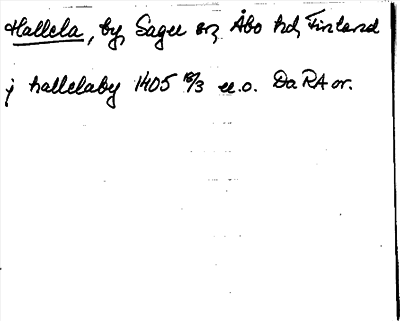 Hallela, by, Sagu sn, Åbo hd, Finland
j hallelaby 1405 18/3 u.o. Da RA or.